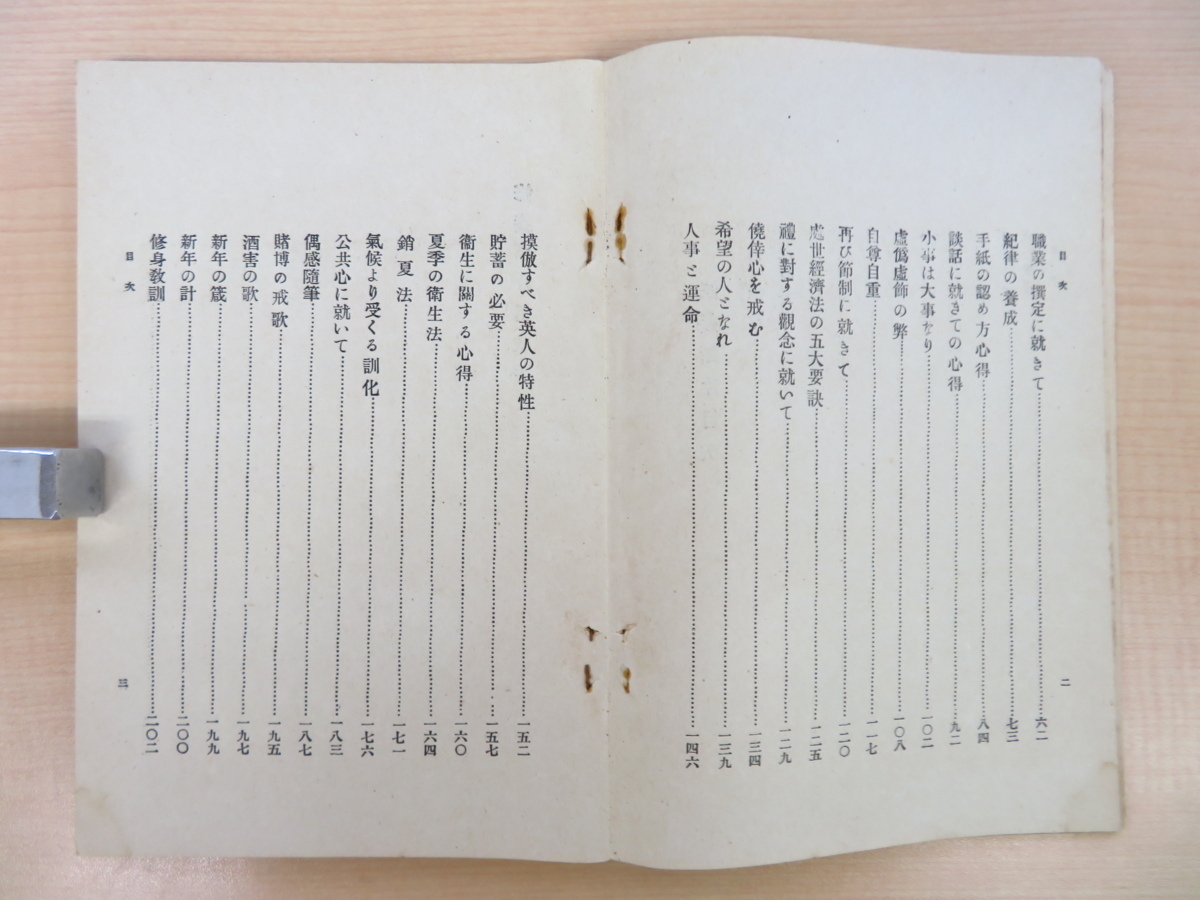 目次
職業の撰定に就きて……六二
紀律の養成……七三
手紙の認め方心得……八四
談話に就きての心得……九二
小事は大事なり……一〇二
虛僞虛飾の弊……一〇八
自尊自重……一一七
再び節制に就きて……一二〇
處世經濟法の五大要訣……一二五
禮に對する觀念に就いて……一二九
僥倖心を戒む……一三四
希望の人となれ……一三九
人事と運命……一四六
二
摸倣すべき英人の特性……一五二
貯蓄の必要……一五七
衞生に關する心得……一六〇
夏季の衞生法……一六四
銷夏法……一七一
氣候より受くる訓化……一七六
公共心に就いて……一八三
偶感隨筆……一八七
賭博の戒歌……一九五
酒害の歌……一九七
新年の箴……一九九
新年の計……二〇〇
修身敎訓……二〇二
目次
三